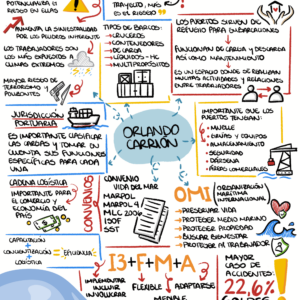 POTENCIALIZA EL
RIESGO EN ELLAS
TRAYECTO, MAS
ES EL RIESGO
AUMENTA LA SINIESTRALIDAD
POR LOS PELIGROS INHERENTES
LOS TRABAJADORES
SON LOS MÁS EXPUESTOS A
CLIMAS EXTREMOS
MAYOR RIESGO DE
TERRORISMO Y
POLIZONTES
TIPOS DE BARCOS:
CRUCEROS
CONTENEDORES
DE CARGA
LÍQUIDOS - HC
MULTIPROPÓSITOS
LOS PUERTOS SIRVEN DE
REFUGIO PARA EMBARCACIONES
FUNCIONAN DE CARGA Y DESCARGA
ASÍ COMO MANTENIMIENTO
ES UN ESPACIO DONDE SE REALIZAN
MUCHAS ACTIVIDADES Y RELACIONES
ENTRE TRABAJADORES
JURISDICCIÓN
PORTUARIA
ES IMPORTANTE CLASIFICAR
LAS CARGAS Y TOMAR EN
CUENTA SUS FUNCIONES
ESPECÍFICAS PARA CADA
UNA
ORLANDO
CARRIÓN
IMPORTANTE QUE LOS
PUERTOS TENGAN:
MUELLE
GRÚAS Y EQUIPOS
ALMACENAMIENTO
SEGURIDAD
DÁRSENA
ÁREAS COMERCIALES
CADENA LOGÍSTICA
IMPORTANTE PARA
EL COMERCIO Y
ECONOMÍA DEL
PAÍS
CAPACITACIÓN
+
CONCIENTIZACIÓN = EFICIENCIA
LOGÍSTICA
CONVENIOS
CONVENIO
VIDA DEL MAR
MARPOL
MARPOL 73
MLC 2006
ISPF
SST
OMI
ORGANIZACIÓN
MARÍTIMA
INTERNACIONAL
PRESERVAR VIDA
PROTEGER MEDIO MARINO
PROTEGER PROPIEDAD
BUSCAR BIENESTAR
PROTEGER AL TRABAJADOR
I3+F+M+A
IMPLEMENTAR
INCLUIR
INVOLUCRAR
FLEXIBLE
ADAPTARSE
MAYOR
CASO DE
ACCIDENTES:
22,6%